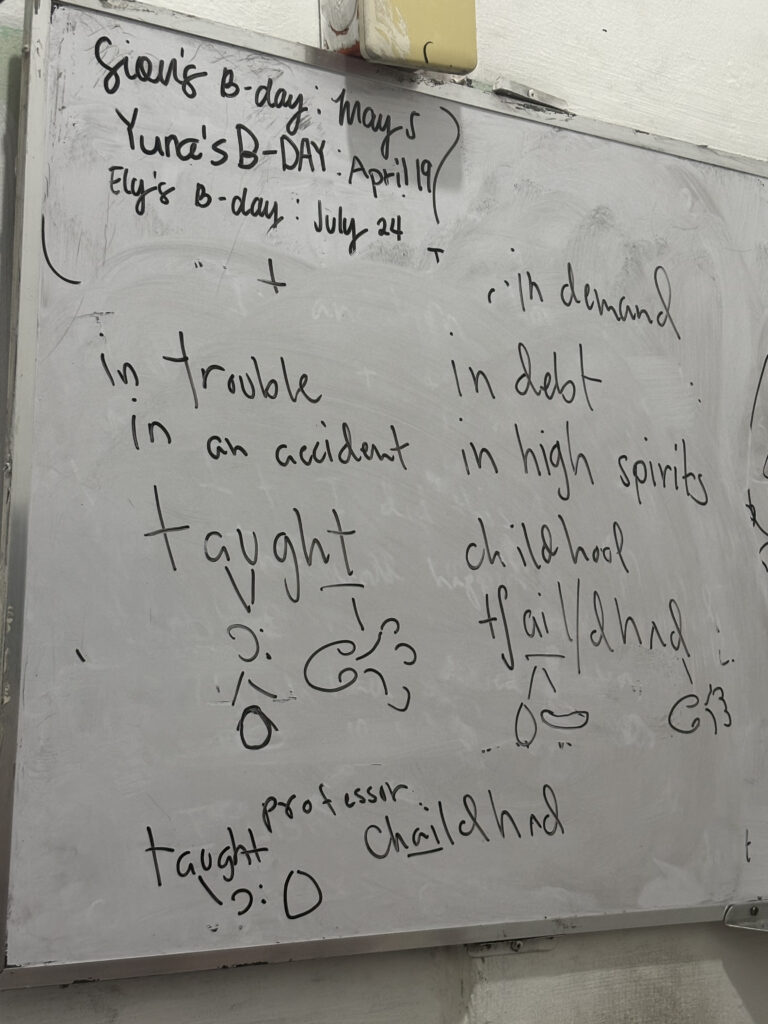 Sion's B-day: May 5
Yuna's B-DAY: April 19
Ely's B-day: July 24
in demand
in trouble
in debt
in an accident
in high spirits
taught
childhool
ɔ:
tʃaildhʌd
professor
chaildhʌd
taught
ɔ: